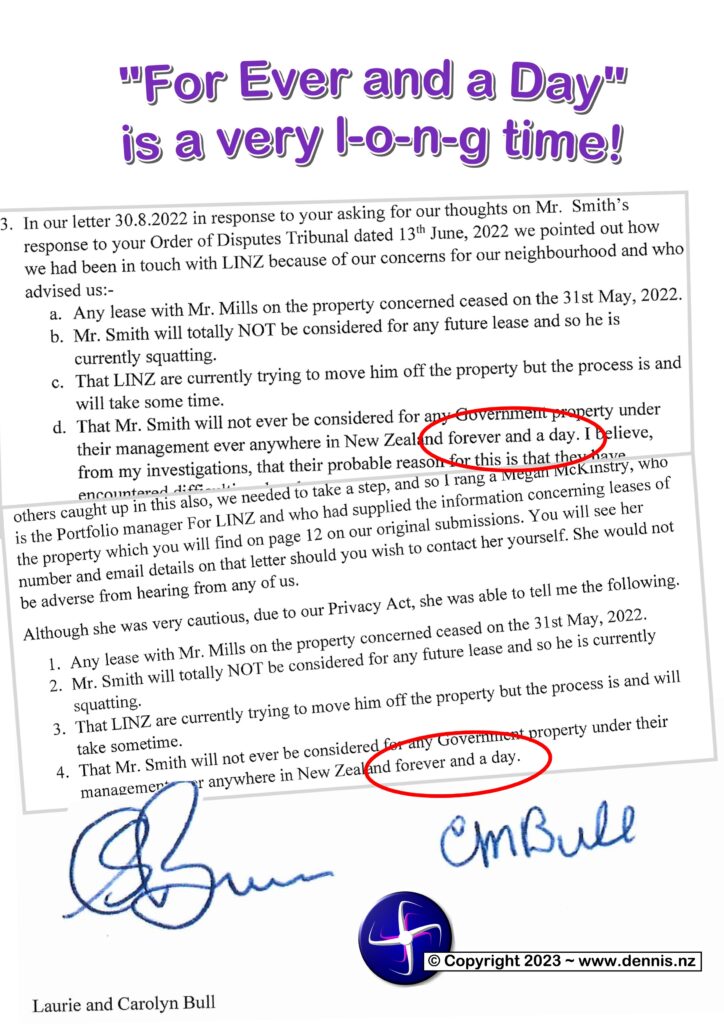 "For Ever and a Day"
is a very l-o-n-g time!
3. In our letter 30.8.2022 in response to your asking for our thoughts on Mr. Smith's
response to your Order of Disputes Tribunal dated 13th June, 2022 we pointed out how
we had been in touch with LINZ because of our concerns for our neighbourhood and who
advised us:-
a. Any lease with Mr. Mills on the property concerned ceased on the 31st May, 2022.
b. Mr. Smith will totally NOT be considered for any future lease and so he is
currently squatting.
c. That LINZ are currently trying to move him off the property but the process is and
will take some time.
d. That Mr. Smith will not ever be considered for any Government property under
their management ever anywhere in New Zealand forever and a day. I believe,
from my investigations, that their probable reason for this is that they have
encountered
others caught up in this also, we needed to take a step, and so I rang a Megan McKinstry, who
is the Portfolio manager For LINZ and who had supplied the information concerning leases of
the property which you will find on page 12 on our original submissions. You will see her
number and email details on that letter should you wish to contact her yourself. She would not
be adverse from hearing from any of us.
Although she was very cautious, due to our Privacy Act, she was able to tell me the following.
1. Any lease with Mr. Mills on the property concerned ceased on the 31st May, 2022.
2. Mr. Smith will totally NOT be considered for any future lease and so he is currently
squatting.
3. That LINZ are currently trying to move him off the property but the process is and will
take sometime.
4. That Mr. Smith will not ever be considered for any Government property under their
management ever anywhere in New Zealand forever and a day.
CMBull
© Copyright 2023 ~ www.dennis.nz
Laurie and Carolyn Bull